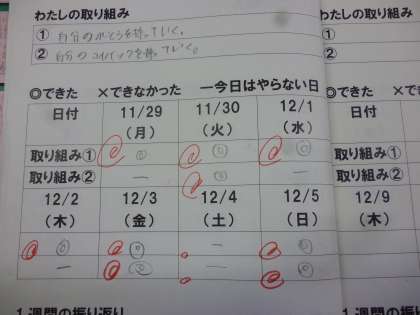 わたしの取り組み
① 自分の水とうを持っていく。
② 自分のエコバックを持っていく。
◎できた ×できなかった 一今日はやらない日
日付 11/29 11/30 12/1 日付
(月) (火) (水)
取り組み① ◎ ◎ ◎ 取り組み①
取り組み② — 取り組み②
12/2 12/3 12/4 12/5 12/9
(木) (金) (土) (日) (木)
◎ ◎ — ◎
— ◎ ◎
1週間の振り返り